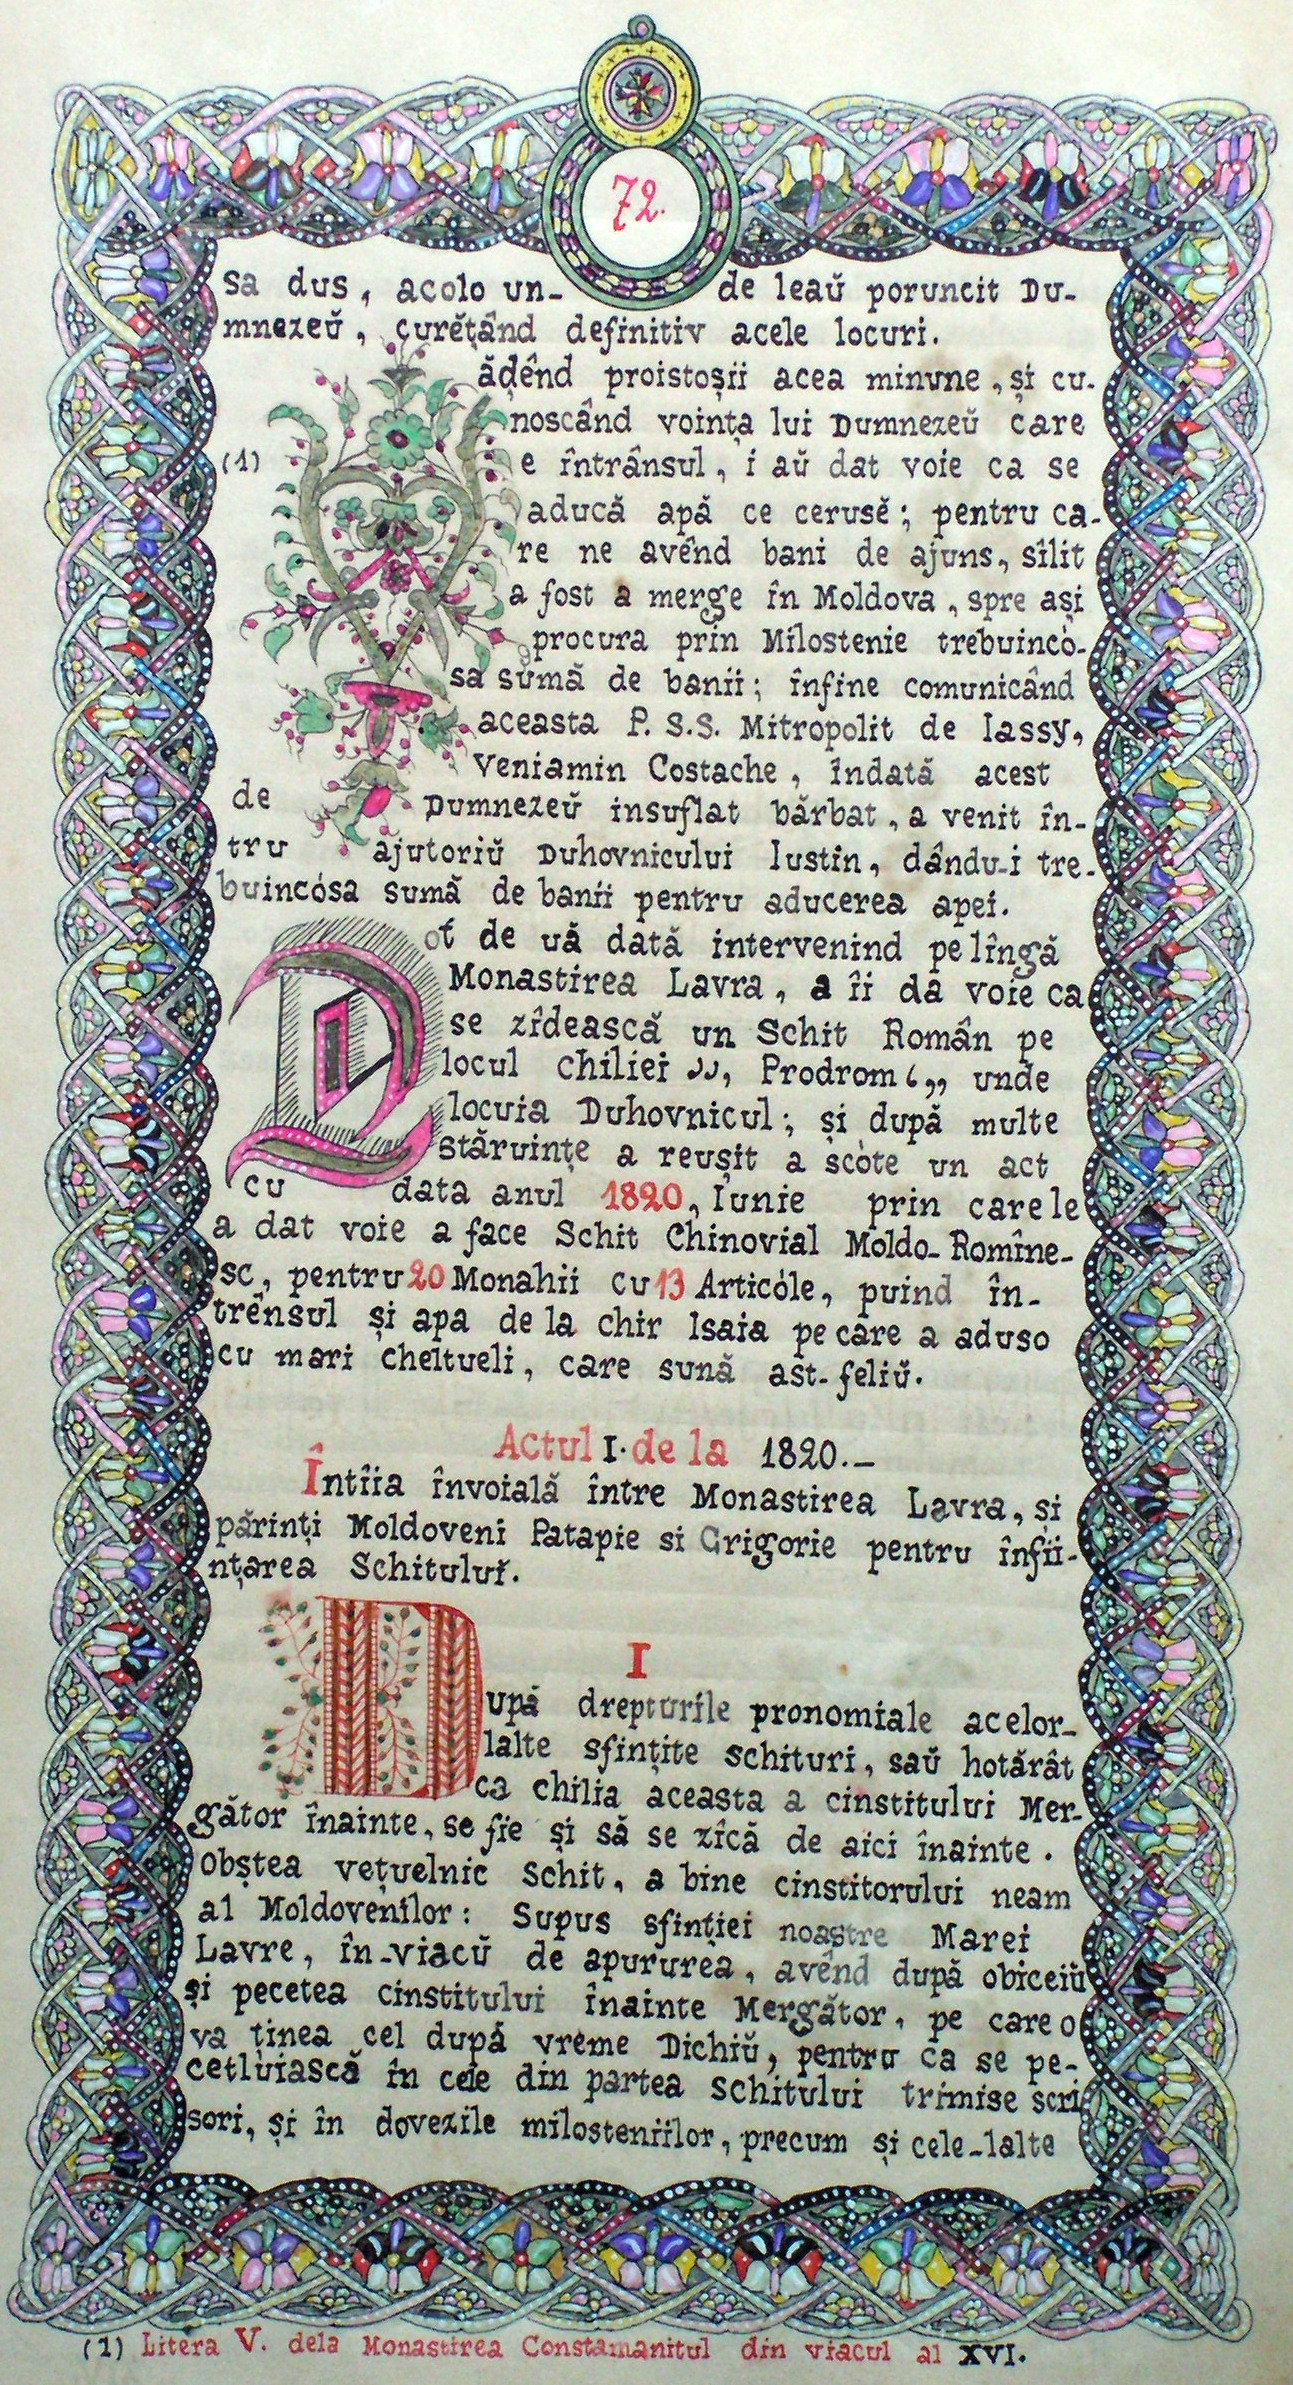 72.
sa dus, acolo un- de leaŭ poruncit Du-
mnezeŭ, curĕţând definitiv acele locuri.
Vădênd proistoşii acea minune, şi cu-
noscând voinţa lui Dumnezeŭ care
(1) e întrânsul, i aŭ dat voie ca se
aducă apă ce cerusĕ; pentru ca-
re ne avênd bani de ajuns, sîlit
a fost a merge în Moldova, spre aşi
procura prin Milostenie trebuincó-
sa sumă de banii; înfine comunicând
aceasta P. S. S. Mitropolit de Iassy,
Veniamin Costache, îndată acest
de Dumnezeŭ insuflat bărbat, a venit în-
tru ajutoriŭ Duhovnicului Iustin, dându-i tre-
buincósa sumă de banii pentru aducerea apei.
Dot de uă dată intervenind pe lîngă
Monastirea Lavra, a îi da voie ca
se zîdească un Schit Român pe
locul chiliei ,,Prodrom,, unde
locuia Duhovnicul; şi după multe
stăruinţe a reuşit a scóte un act
cu data anul 1820, Iunie prin care le
a dat voie a face Schit Chinovial Moldo-Romîne-
sc, pentru 20 Monahii cu 13 Articóle, puind în-
trênsul şi apa de la chir Isaia pe care a aduso
cu mari cheltueli, care sună ast-feliŭ.
Actul I. de la 1820.-
Întîia învoială între Monastirea Lavra, şi
părinţi Moldoveni Patapie si Grigorie pentru înfii-
nţarea Schituluĭ.
I
După drepturile pronomiale acelor-
lalte sfinţite schituri, saŭ hotărât
ca chilia aceasta a cinstitului Mer-
gător înainte, se fie şi să se zîcă de aici înainte.
obştea veţuelnic Schit, a bine cinstitorului neam
al Moldovenilor: Supus sfinţiei noastre Marei
Lavre, în-viacŭ de apururea, avênd după obiceiŭ
şi pecetea cinstitului înainte Mergător, pe care o
va ţinea cel după vreme Dichiŭ, pentru ca se pe-
cetluiască în cele din partea schitului trimise scri
sori, şi în dovezile milosteniilor, precum şi cele-lalte
(1) Litera V. dela Monastirea Constamanitul din viacul al XVI.